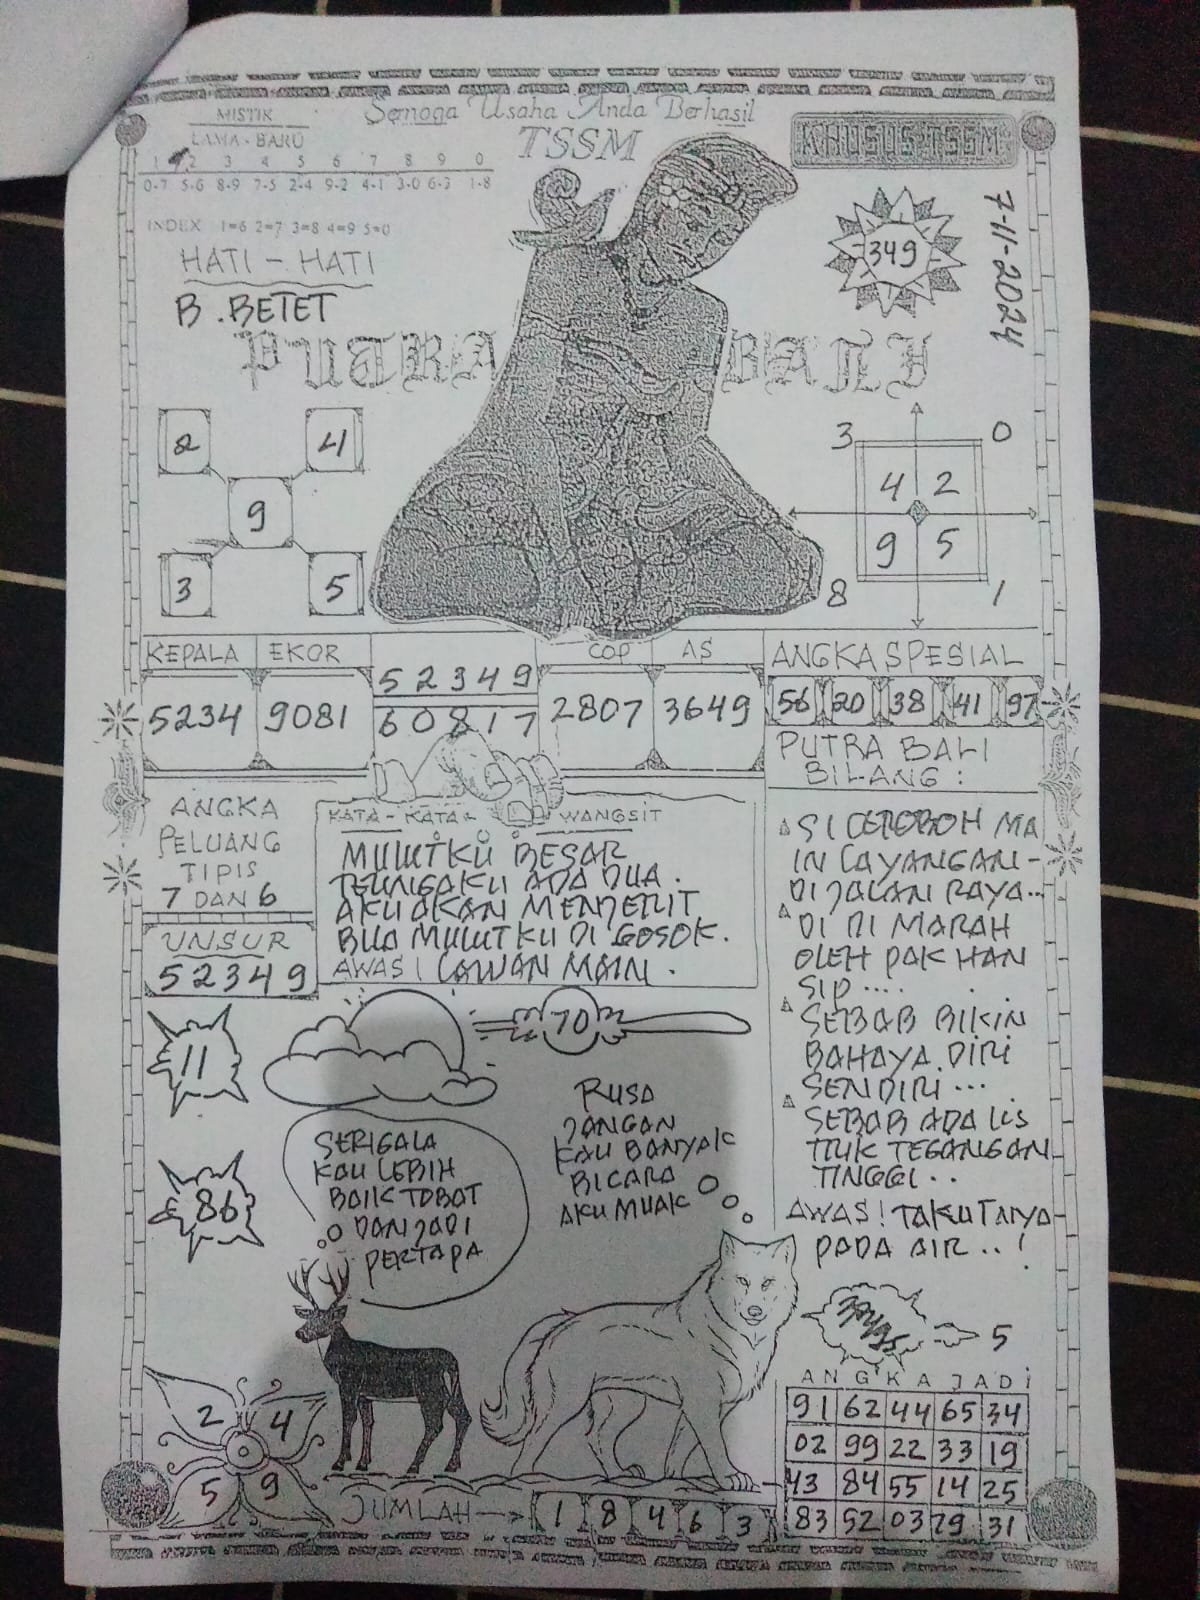 Semoga Usaha Anda Berhasil
TSSM
KHUSUS TSSM
MISTIK
LAMA - BARU
1 2 3 4 5 6 7 8 9 0
0-7 5-6 8-9 7-5 2-4 9-2 4-1 3-0 6-3 1-8
INDEX 1=6 2=7 3=8 4=9 5=0
HATI - HATI
B . BETET
349
7-11-2024
PUTRA BALI
2 4
9
3 5
3 0
4 2
9 5
8 1
KEPALA EKOR COP AS
5234 9081
5 2 3 4 9
6 0 8 1 7
2807 3649
ANGKA SPESIAL
56 20 38 41 97
PUTRA BALI
BILANG :
SI CEROBOH MA
IN LAYANGAN -
DI JALAN RAYA...
DI DI MARAH
OLEH PAK HAN
SIP ....
SEBAB BIKIN
BAHAYA DIRI
SENDIRI ...
SEBAB ADA LIS
TRIK TEGANGAN
TINGGI . .
AWAS ! TAKUTNYA
PADA AIR .. !
ANGKA
PELUANG
TIPIS
7 DAN 6
UNSUR
5 2 3 4 9
KATA - KATA - WANGSIT
MULUTKU BESAR
TELINGAKU ADA DUA .
AKU AKAN MENJERIT
BILA MULUTKU DI GOSOK .
AWAS ! LAWAN MAIN .
11
70
86
SERIGALA
KAU LEBIH
BAIK TOBAT
DAN JADI
PERTAPA
RUSA
JANGAN
KAU BANYAK
BICARA
AKU MUAK
5
2 4
5 9
JUMLAH
1 8 4 6 3
ANGKA JADI
91 62 44 65 34
02 99 22 33 19
43 84 55 14 25
83 52 03 29 31